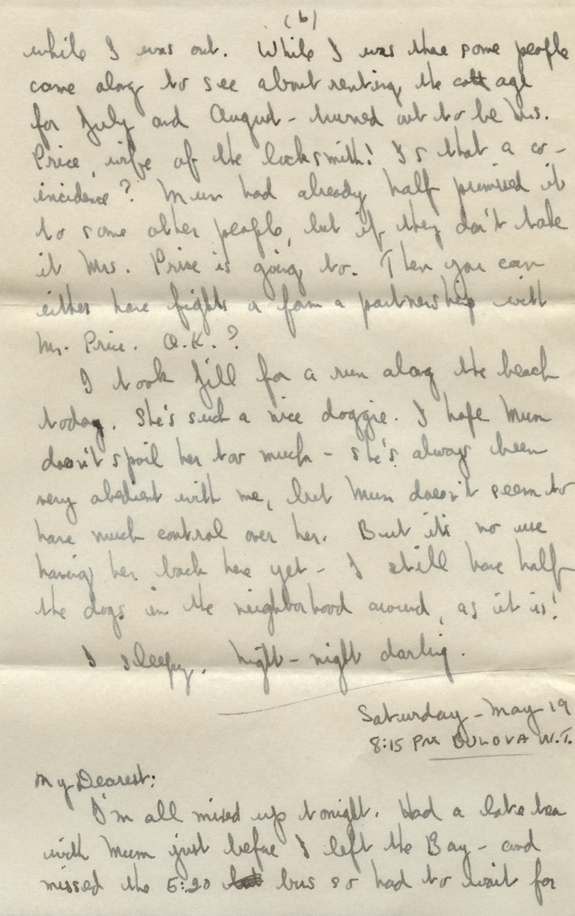 (6)
while I was out. While I was there some people
came along to see about renting the cottage
for July and August - turned out to be Mrs.
Price, wife of the locksmith! Is that a co-
incidence? Mum had already half promised it
to some other people, but if they don't take
it Mrs. Price is going to. Then you can
either have fights or form a partnership with
Mr. Price. O.K.?
I took Jill for a run along the beach
today. She's such a nice doggie. I hope Mum
doesn't spoil her too much - she's always been
very obedient with me, but Mum doesn't seem to
have much control over her. But it's no use
having her back here yet - I still have half
the dogs in the neighborhood around, as it is!
I sleepy. Night-night darling.
Saturday - May 19
8:15 PM BULOVA W.T.
My Dearest:
I'm all mixed up tonight. Had a late tea
with Mum just before I left the Bay - and
missed the 5:20 bus so had to wait for